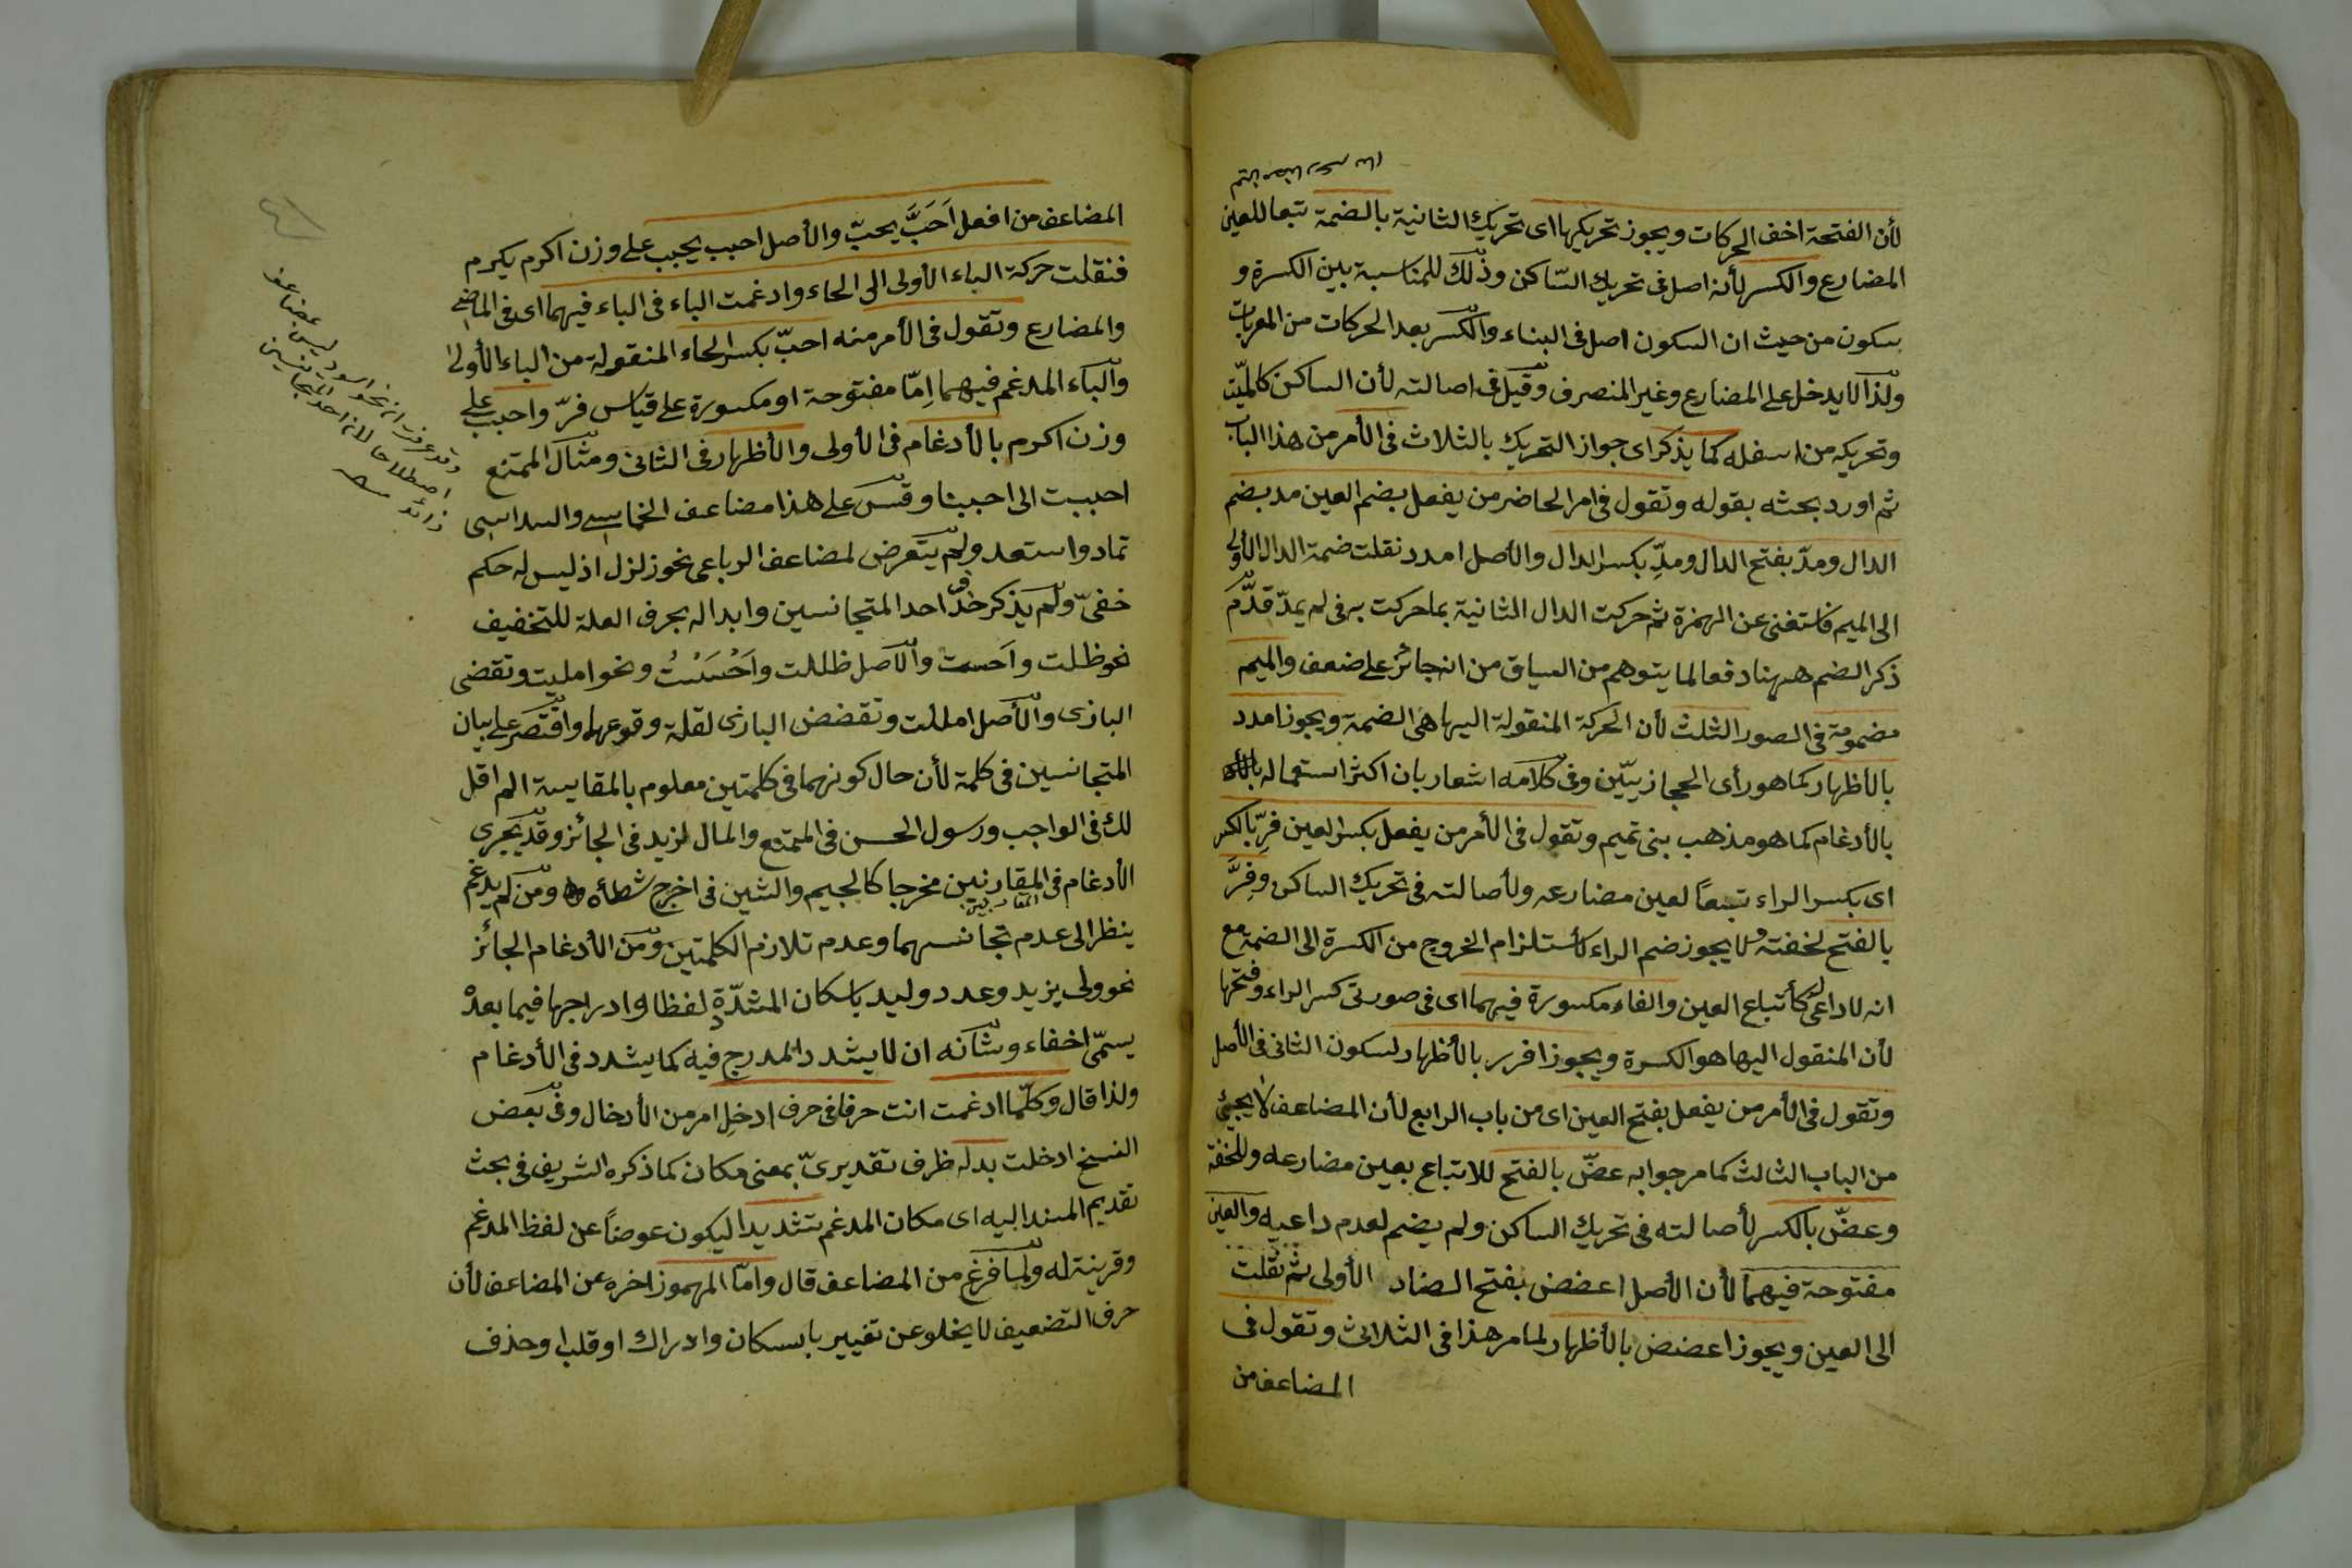 لأن الفتحة اخف الحركات ويجوز تحريكها اى تحريك الثانية بالضمة تبعا للعين
المضارع والكسر لأنه اصل فى تحريك السّاكن وذلك للمناسبة بين الكسرة و
سكون من حيث ان السكون اصل فى البناء والكسر بعد الحركات من المعربات
ولذا لا يدخل على المضارع وغير المنصرف وقيل فى اصالته لأن الساكن كالميّت
وتحريكه من اسفله كما يذكر اى جواز التحريك بالثلاث فى الأمر من هذا الباب
ثم اورد بحثه بقوله وتقول فى امر الحاضر من يفعل بضم العين مد بضم
الدال ومدّ بفتح الدال ومدِّ بكسر الدال والأصل امدد نقلت ضمة الدال الأولى
الى الميم فاستغنى عن الهمزة ثم حركت الدال الثانية بما حركت به فى لم يمدّ قدّم
ذكر الضم ههنا دفعا لما يتوهم من السياق من انه جائز على ضعف والميم
مضمومة فى الصور الثلث لأن الحركة المنقولة اليها هى الضمة ويجوز امدد
بالأظهار كما هو رأى الحجازيّين وفى كلامه اشعار بان اكثر استعماله
بالأدغام كما هو مذهب بنى تميم وتقول فى الأمر من يفعل بكسر العين فِرِّ بالكسر
اى بكسر الراء تبعاً لعين مضارعه ولأصالته فى تحريك الساكن وفِرَّ
بالفتح لخفته ولا يجوز ضم الراء لأستلزام الخروج من الكسرة الى الضمة مع
انه لا داعى له كأتباع العين والفاء مكسورة فيهما اى فى صورتى كسر الراء وفتحها
لأن المنقول اليها هو الكسرة ويجوز افرر بالأظهار لسكون الثانى فى الأصل
وتقول فى الأمر من يفعل بفتح العين اى من باب الرابع لأن المضاعف لا يجيئ
من الباب الثالث كما مر جوابه عضّ بالفتح للاتباع بعين مضارعه وللخفة
وعضّ بالكسر لأصالته فى تحريك الساكن ولم يضم لعدم داعيه والعين
مفتوحة فيهما لأن الأصل اعضض بفتح الضاد الأولى ثم نقلت
الى العين ويجوز اعضض بالأظهار لما مر هذا فى الثلاثى وتقول فى
المضاعف من
المضاعف من افعل اَحَبَّ يحبّ والأصل احبب يحبب على وزن اكرم يكرم
فنقلت حركة الباء الأولى الى الحاء وادغمت الباء فى الباء فيهما اى فى الماضى
والمضارع وتقول فى الأمر منه احبّ بكسر الحاء المنقولة من الباء الأولى
والباء المدغم فيهما اِمّا مفتوحة او مكسورة على قياس فرّ واحبب على
وزن اكرم بالأدغام فى الأولى والأظهار فى الثانى ومثال الممتنع
احببت الى احببنا وقس على هذا مضاعف الخماسى والسداسى
تمادّ واستعد ولم يتعرض لمضاعف الرباعى نحو زلزل اذ ليس له حكم
خفىّ ولم يذكر حذف احد المتجانسين وابداله بحرف العلة للتخفيف
نحو ظلت واَحست والأصل ظللت واَحْسَسْتُ ونحو امليت وتقضى
البازى والأصل امللت وتقضض البازى لقلة وقوعها واقتصر على بيان
المتجانسين فى كلمة لأن حال كونهما فى كلمتين معلوم بالمقايسة الم اقل
لك فى الواجب ورسول الحسن فى الممتنع والمال لزيد فى الجائز وقد يجرى
الأدغام فى المقارنين مخرجا كالجيم والشين فى اخرج شطأه ومن لم يدغم
ينظر الى عدم تجانسهما وعدم تلازم الكلمتين ومن الأدغام الجائز
نحو ولى يزيد وعدد وليد باسكان المشدّدة لفظا وادراجها فيما بعده
يسمّى اخفاء وشانه ان لا يشدد المدرج فيه كما يشدد فى الأدغام
ولذا قال وكلّما ادغمت انت حرفا فى حرف ادخِل امر من الأدخال وفى بعض
النسخ ادخلت بدله ظرف تقديرىّ بمعنى مكان كما ذكره الشريف فى بحث
تقديم المسند اليه اى مكان المدغم تشديدا ليكون عوضاً عن لفظ المدغم
وقرينة له ولما فرغ من المضاعف قال وامّا المهموز اخره عن المضاعف لأن
حرف التضعيف لا يخلو عن تغيير باسكان وادراك او قلب او حذف
وقد عرفت ان نحو اسود ليس بمضاعف
اصطلاحا لأن احد المتجانسين
زائد